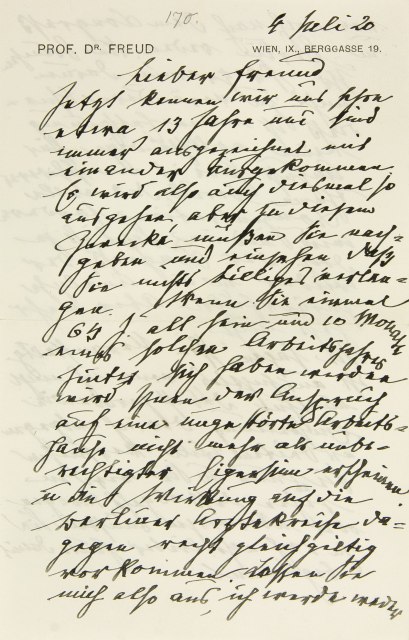 170.
4 Juli 20
PROF. DR. FREUD
WIEN, IX., BERGGASSE 19.
Lieber Freund
Jetzt kennen wir uns schon
etwa 13 Jahre und sind
immer ausgezeichnet mit
einander ausgekommen
Es wird also auch diesmal so
ausgehen aber zu diesem
Zwecke müßen Sie nach-
geben und einsehen daß
Sie nichts billiges verlan-
gen. Wenn Sie einmal
64 J alt sein und 10 Monate
eines solchen Arbeitsjahres
hinter sich haben werden
wird Ihnen der Anspruch
auf eine ungestörte Arbeits-
pause nicht mehr als unbe-
rechtigter Eigensinn erscheinen
u die Wirkung auf die
Berliner Ärztekreise da-
gegen recht gleichgiltig
vorkommen. Lassen Sie
mich also aus, ich werde weder